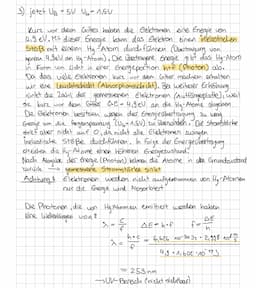 3) jetzt U_B = 5V U_G = 1,5V
Kurz vor dem Gitter haben die Elektronen eine Energie von
4,9 eV. Mit dieser Energie kann das Elektron einen unelastischen
Stoß mit einem Hg-Atom durchführen (Übertragung von
genau 4,9eV an Hg-Atom). Die übertragene Energie gibt das Hg-Atom
in Form von Licht in einer Energieportion h·f (Photon) ab.
Da das viele Elektronen kurz vor dem Gitter machen erhalten
wir eine Leuchtschicht
ist die Zahl der
kurz vor dem Gitter 4,9 eV an die Hg-Atome abgeben.
Die Elektronen besitzen wegen der Energieübertragung zu wenig
Energie um die Gegenspannung (U_G = 1,5V) zu überwinden. Die Stromstärke
aber nicht auf 0, da nicht alle Elektronen
unelastische Stöße durchführen. In Folge der Energieübertragung
erreichen die Hg-Atome einen höheren Energiezustand.
Nach Abgabe der Energie (Photon) kehren die Atome in den Grundzustand
zurück → gemessene Stromstärke sinkt
Achtung! Elektronen werden nicht aufgenommen von Hg-Atomen
nur die Energie wird absorbiert
Die Photonen, die von Hg-Atomen emittiert werden haben
eine Wellenlänge von?
λ = c/f ΔE = h·f f = ΔE/h
λ = h·c/ΔE
= 253nm
→ UV-Bereich (nicht sichtbar)